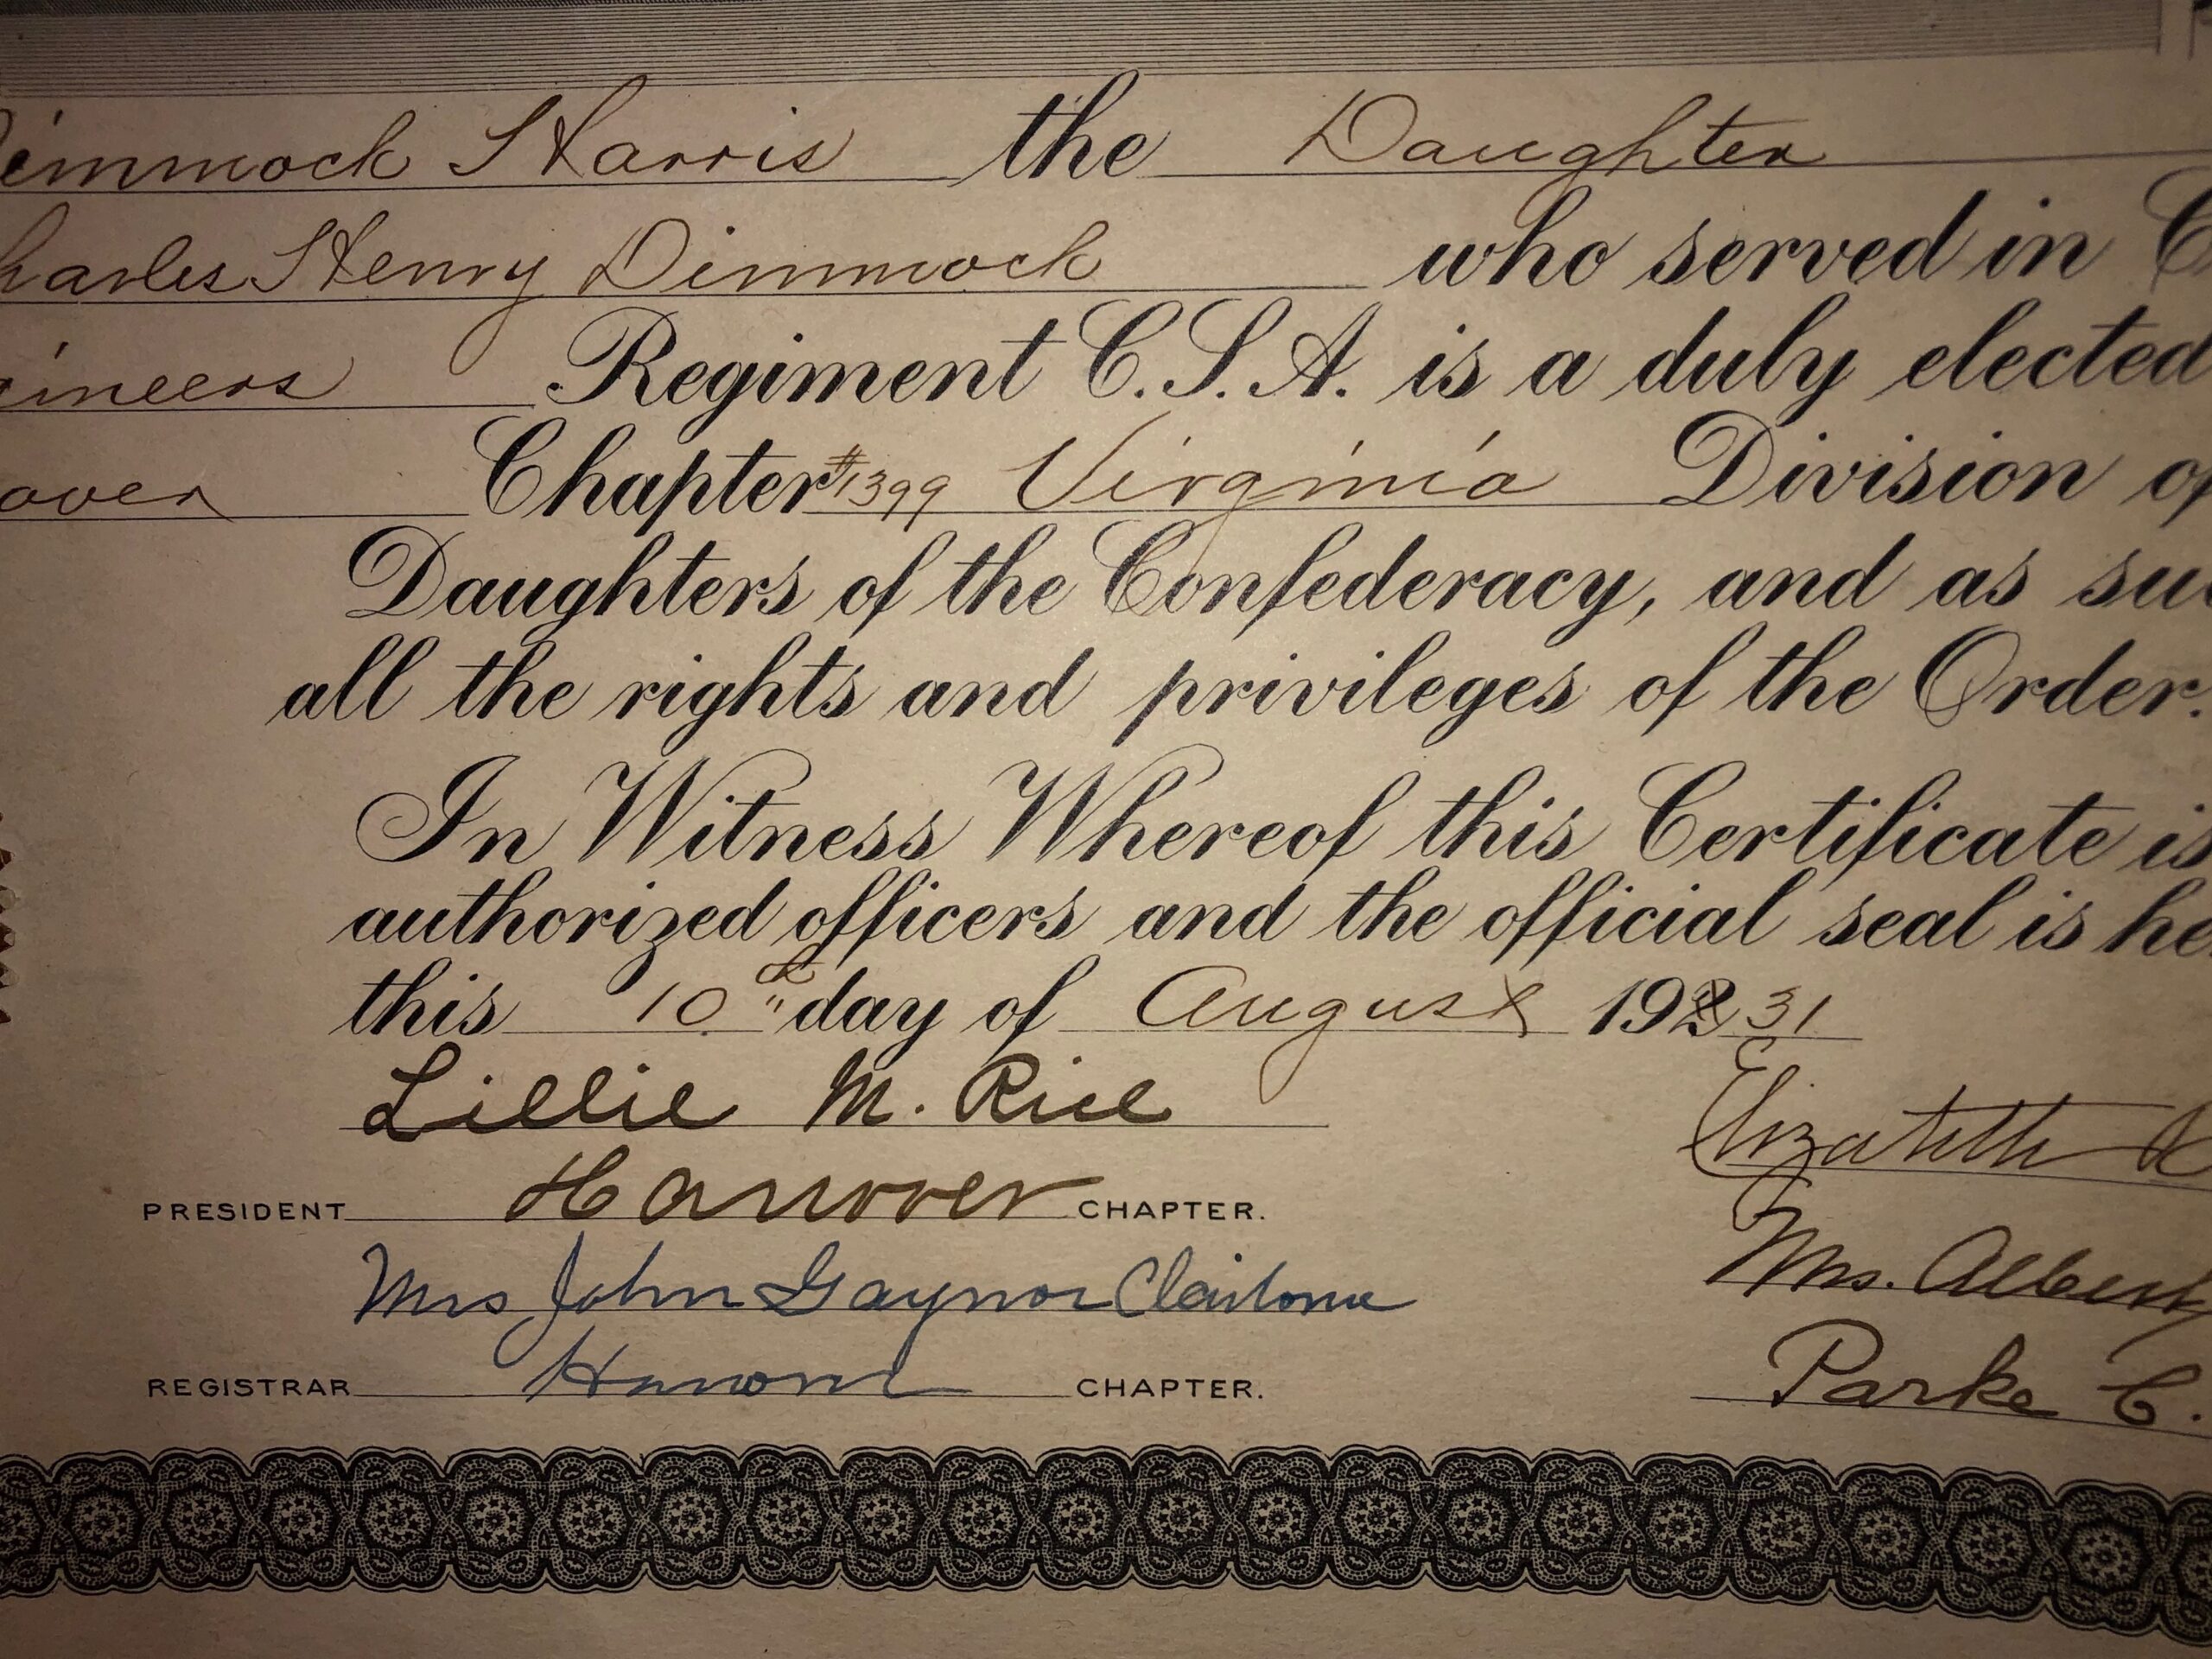 immock Harris the Daughter
harles Henry Dimmock who served in C
gineers Regiment C.S.A. is a duly elected
over Chapter #1399 Virginia Division of
Daughters of the Confederacy, and as su
all the rights and privileges of the Order.
In Witness Whereof this Certificate is
authorized officers and the official seal is he
this 10th day of August 192 31
Lillie M. Rice Elizabeth
PRESIDENT Hanover CHAPTER.
Mrs. Albert
Mrs John Gaynor Claiborne
REGISTRAR Hanover CHAPTER.
Parke C.